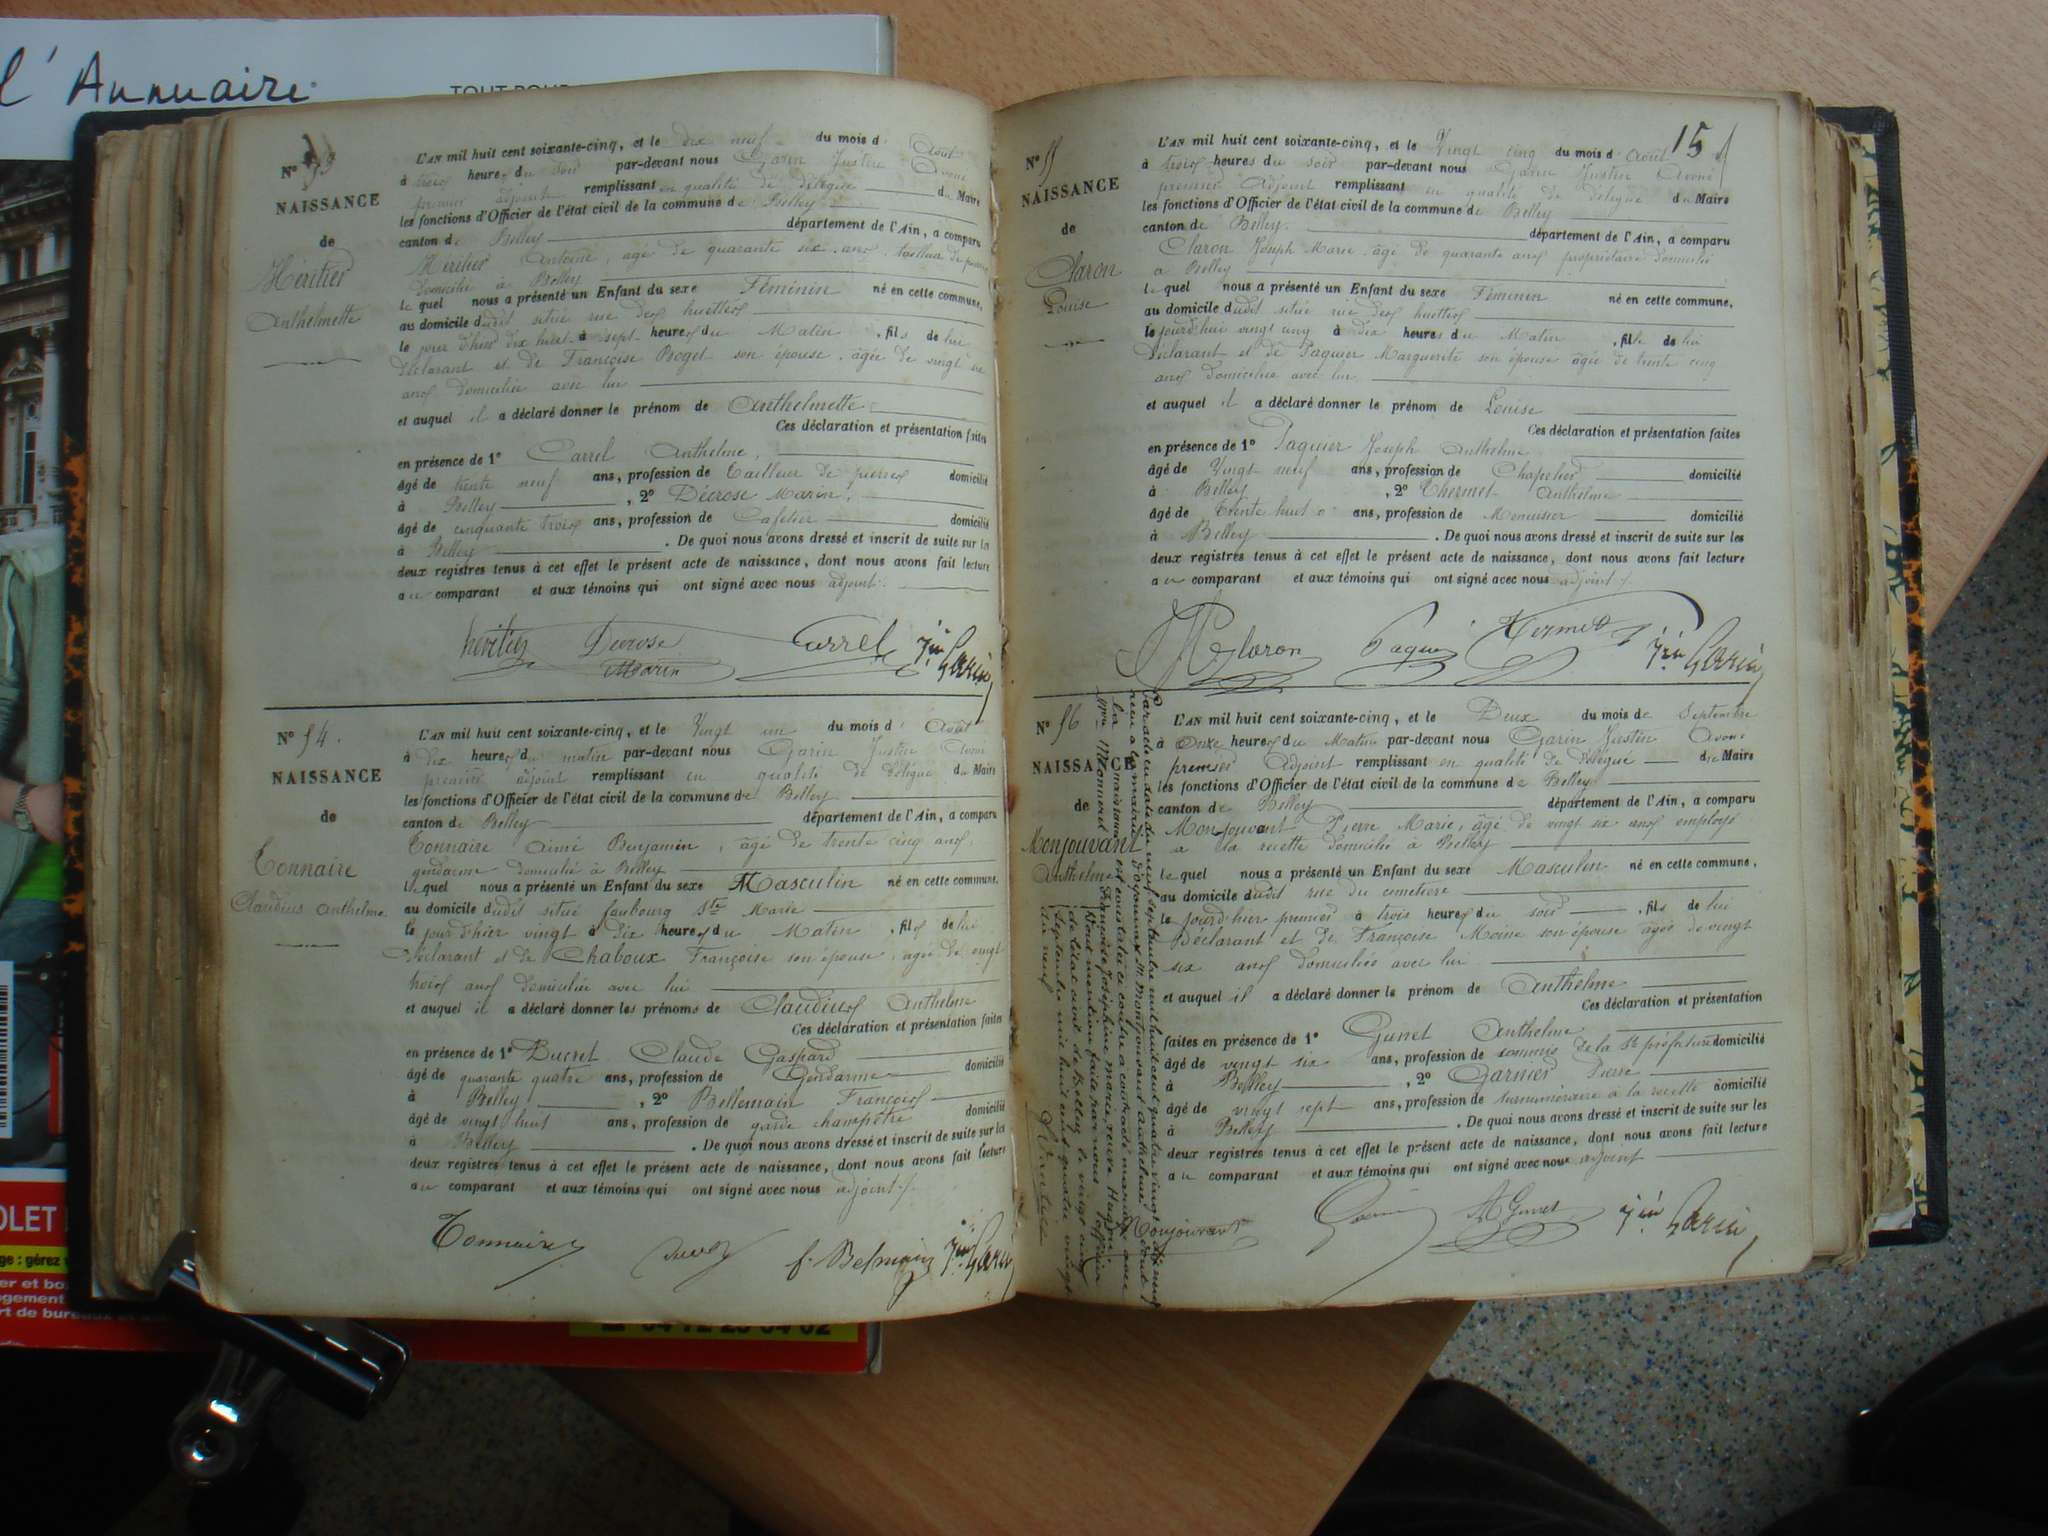 l'Annuaire
N° 53
NAISSANCE
de
Héritier
Anthelmette
L'AN mil huit cent soixante-cinq, et le dix neuf du mois d' Août
à trois heures du soir par-devant nous Garin Justin Avoué
premier adjoint remplissant en qualité de délégué du Maire
les fonctions d'Officier de l'état civil de la commune de Belley
canton de Belley département de l'Ain, a comparu
Héritier Antoine, âgé de quarante six ans, tailleur de pierres
domicilié à Belley
le quel nous a présenté un Enfant du sexe Féminin né en cette commune,
au domicile dudit située rue des huettes
le jour d'hier dix huit à sept heures du Matin, fils de lui
déclarant et de Françoise Boget son épouse, âgée de vingt six
ans domiciliée avec lui
et auquel il a déclaré donner le prénom de Anthelmette
Ces déclaration et présentation faites
en présence de 1° Carrel Anthelme,
âgé de trente neuf ans, profession de tailleur de pierres domicilié
à Belley, 2° Décrose Marin,
âgé de cinquante trois ans, profession de Cafetier domicilié
à Belley. De quoi nous avons dressé et inscrit de suite sur les
deux registres tenus à cet effet le présent acte de naissance, dont nous avons fait lecture
au comparant et aux témoins qui ont signé avec nous adjoint.
héritier Decrose Marin Carrel Jin Garin
N° 54.
NAISSANCE
de
Connaire
Claudius Anthelme
L'AN mil huit cent soixante-cinq, et le Vingt un du mois d' Août
à dix heures du matin par-devant nous Garin Justin Avoué
premier adjoint remplissant en qualité de délégué du Maire
les fonctions d'Officier de l'état civil de la commune de Belley
canton de Belley département de l'Ain, a comparu
Connaire Aimé Benjamin, âgé de trente cinq ans,
gendarme domicilié à Belley
le quel nous a présenté un Enfant du sexe Masculin né en cette commune,
au domicile dudit situé faubourg Ste Marie
le jour d'hier vingt à dix heures du Matin, fils de lui
déclarant et de Chaboux Françoise son épouse, âgée de vingt
trois ans domiciliée avec lui
et auquel il a déclaré donner les prénoms de Claudius Anthelme
Ces déclaration et présentation faites
en présence de 1° Ducret Claude Gaspard
âgé de quarante quatre ans, profession de Gendarme domicilié
à Belley, 2° Bellemain François
âgé de vingt huit ans, profession de garde champêtre domicilié
à Belley. De quoi nous avons dressé et inscrit de suite sur les
deux registres tenus à cet effet le présent acte de naissance, dont nous avons fait lecture
au comparant et aux témoins qui ont signé avec nous adjoint.
Connaire f. Belmain Jin Garin
15
N° 55
NAISSANCE
de
Claron
Louise
L'AN mil huit cent soixante-cinq, et le Vingt cinq du mois d' Août
à trois heures du soir par-devant nous Garin Justin Avoué
premier Adjoint remplissant en qualité de délégué du Maire
les fonctions d'Officier de l'état civil de la commune de Belley
canton de Belley département de l'Ain, a comparu
Claron Joseph Marie, âgé de quarante ans propriétaire domicilié
à Belley
le quel nous a présenté un Enfant du sexe Féminin né en cette commune,
au domicile dudit située rue des huettes
le jourd'hui vingt cinq à dix heures du Matin, fille de lui
déclarant et de Paquier Marguerite son épouse âgée de trente cinq
ans domiciliée avec lui
et auquel il a déclaré donner le prénom de Louise
Ces déclaration et présentation faites
en présence de 1° Paquier Joseph Anthelme
âgé de Vingt neuf ans, profession de Chapelier domicilié
à Belley, 2° Thermet Anthelme
âgé de trente huit ans, profession de Menuisier domicilié
à Belley. De quoi nous avons dressé et inscrit de suite sur les
deux registres tenus à cet effet le présent acte de naissance, dont nous avons fait lecture
au comparant et aux témoins qui ont signé avec nous adjoint
Claron Paquier Termet Jin Garin
N° 56
NAISSANCE
de
Monjouvant
Anthelme
L'AN mil huit cent soixante-cinq, et le Deux du mois de Septembre
à Onze heures du Matin par-devant nous Garin Justin Avoué
premier Adjoint remplissant en qualité de délégué du Maire
les fonctions d'Officier de l'état civil de la commune de Belley
canton de Belley département de l'Ain, a comparu
Monjouvant Pierre Marie, âgé de vingt six ans employé
à la recette domicilié à Belley
le quel nous a présenté un Enfant du sexe Masculin né en cette commune,
au domicile dudit rue du cimetière
le jourd'hier premier à trois heures du soir, fils de lui
déclarant et de Françoise Moine son épouse âgée de vingt
six ans domiciliés avec lui
et auquel il a déclaré donner le prénom de Anthelme
Ces déclaration et présentation
faites en présence de 1° Gunet Anthelme
âgé de vingt six ans, profession de commis de la Ss préfecture domicilié
à Belley, 2° Garnier Pierre
âgé de vingt sept ans, profession de surnuméraire à la recette domicilié
à Belley. De quoi nous avons dressé et inscrit de suite sur les
deux registres tenus à cet effet le présent acte de naissance, dont nous avons fait lecture
au comparant et aux témoins qui ont signé avec nous adjoint
Monjouvant A Gunet Jin Garin
Par acte en date du neuf septembre mil huit cent quatre vingt
de l'état civil de Belley le vingt cinq
septembre mil huit cent quatre vingt
dix neuf